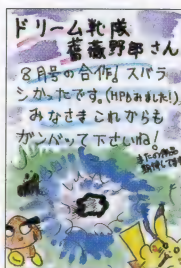 ドリーム戦隊
薔薇野郎さん
8月号の合作♪スバラ
シかったです。(HPもみました!)
みなさまこれからも
ガンバッて下さいね!
また次の作品
期待してます